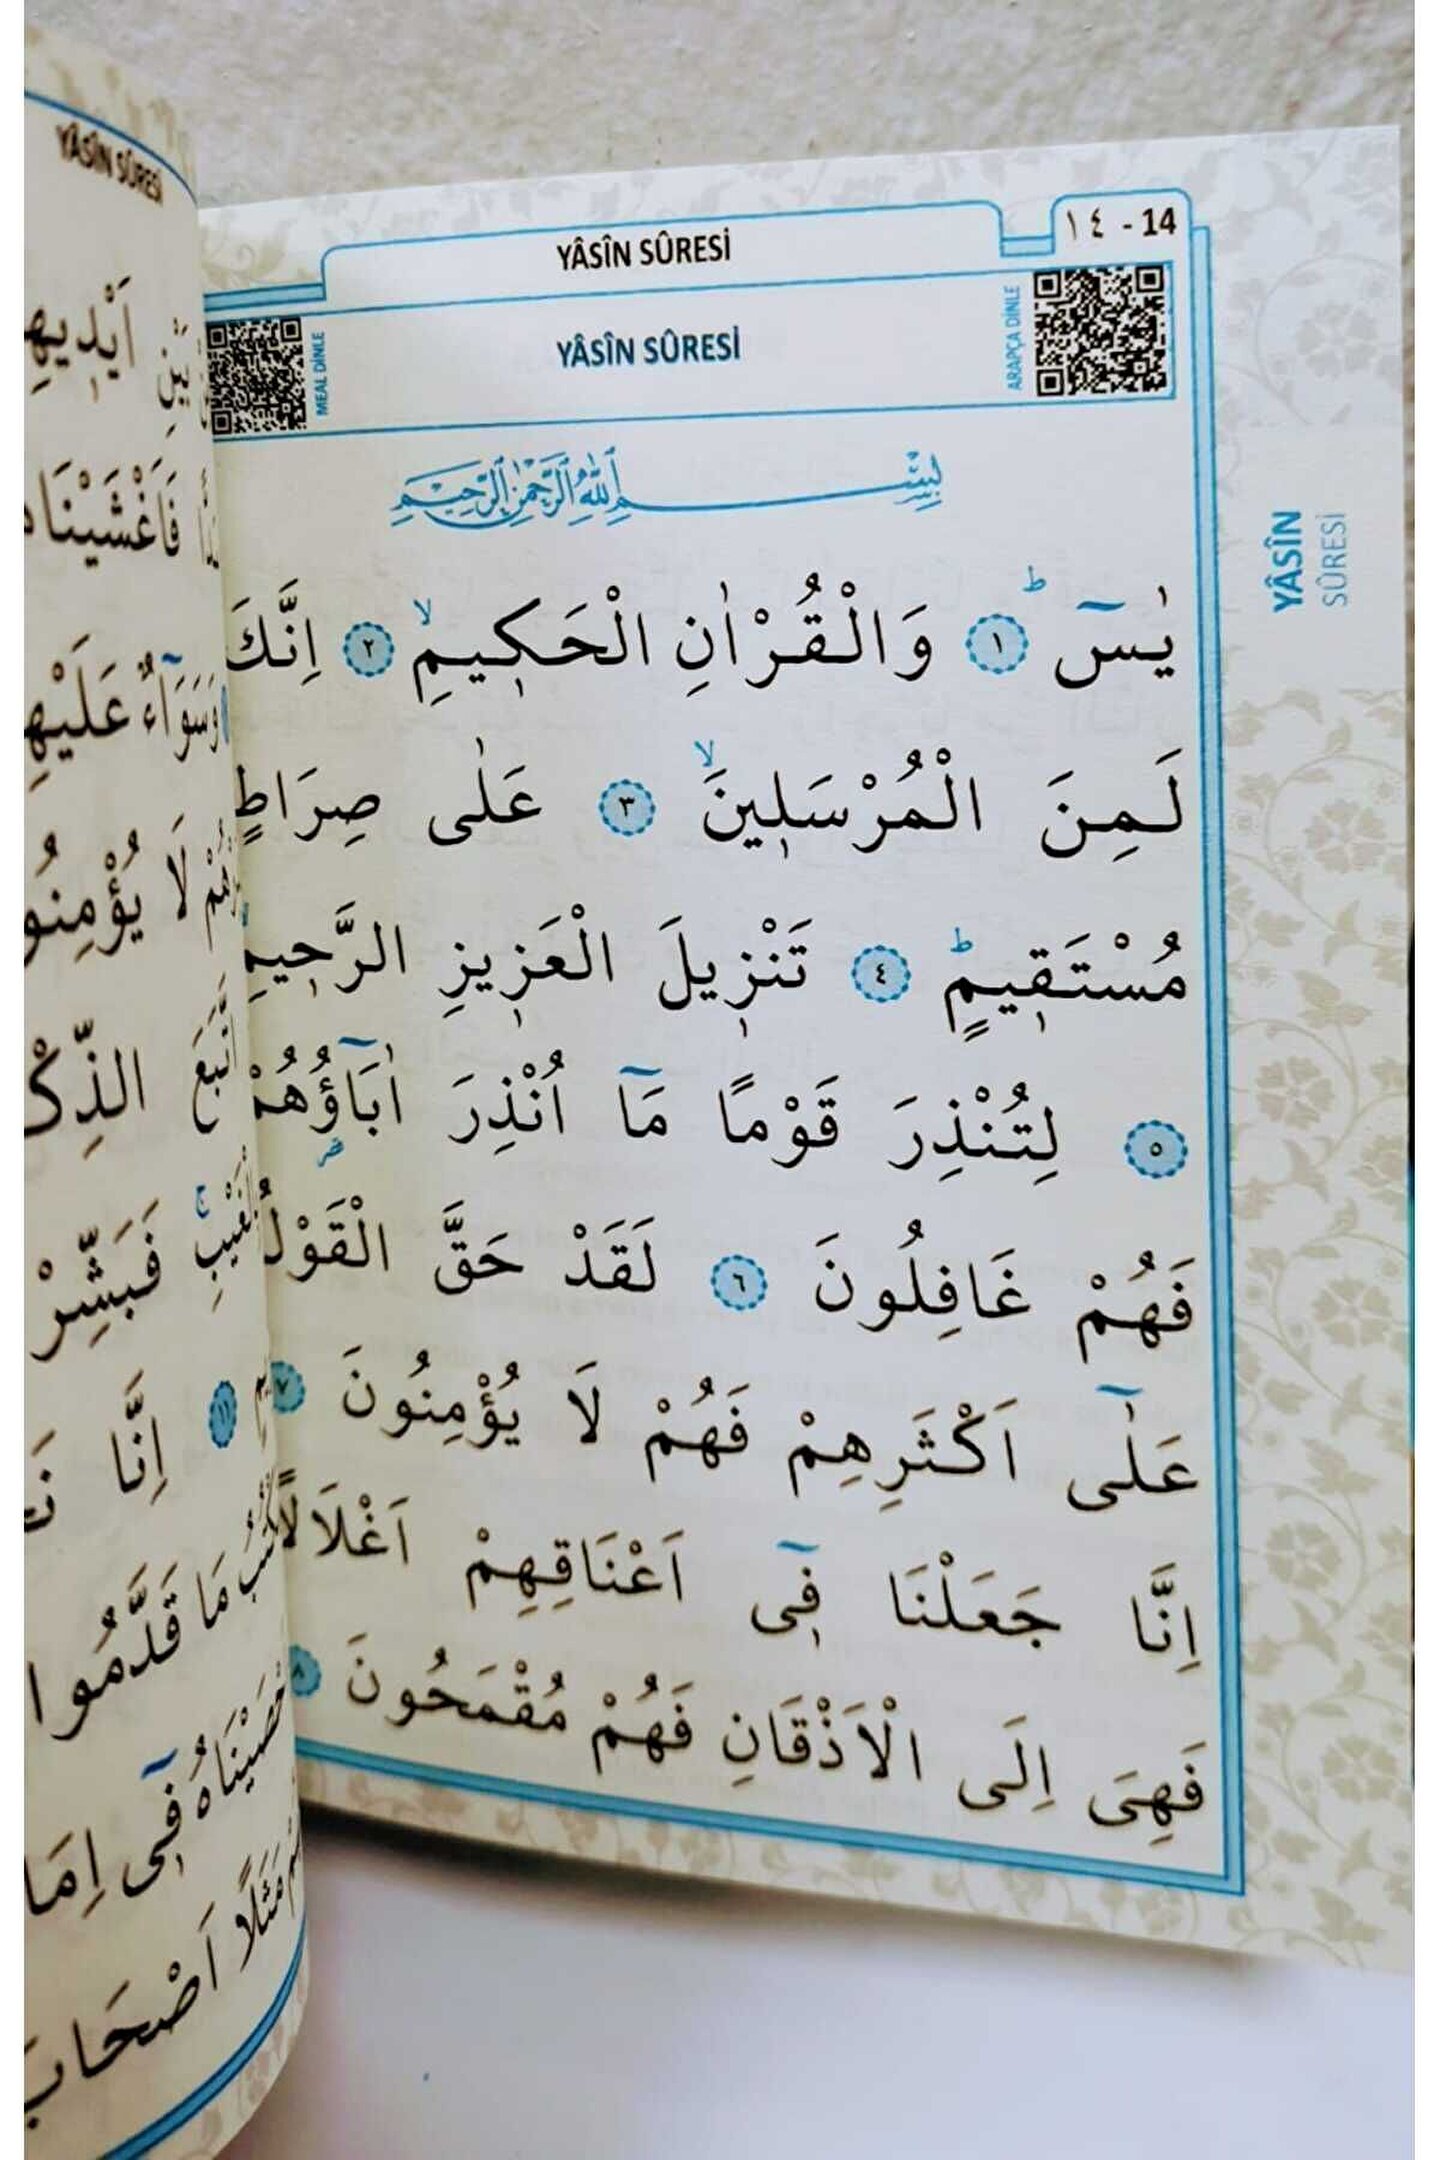 YÂSÎN SÛRESİ
١٤ - 14
YÂSÎN SÛRESİ
MEAL DİNLE
ARAPÇA DİNLE
بِسْمِ اللّٰهِ الرَّحْمٰنِ الرَّحٖيمِ
يٰسٓ ط ﴿١﴾ وَالْقُرْاٰنِ الْحَكٖيمِ لا ﴿٢﴾ اِنَّكَ
لَمِنَ الْمُرْسَلٖينَ لا ﴿٣﴾ عَلٰى صِرَاطٍ
مُسْتَقٖيمٍ ط ﴿٤﴾ تَنْزٖيلَ الْعَزٖيزِ الرَّحٖيمِ
﴿٥﴾ لِتُنْذِرَ قَوْمًا مَٓا اُنْذِرَ اٰبَٓاؤُهُمْ
فَهُمْ غَافِلُونَ ﴿٦﴾ لَقَدْ حَقَّ الْقَوْلُ
عَلٰٓى اَكْثَرِهِمْ فَهُمْ لَا يُؤْمِنُونَ ﴿٧﴾
اِنَّا جَعَلْنَا فٖٓى اَعْنَاقِهِمْ اَغْلَالًا
فَهِىَ اِلَى الْاَذْقَانِ فَهُمْ مُقْمَحُونَ ﴿٨﴾
YÂSÎN
SÛRESİ
YÂSÎN SÛRESİ
بَيْنِ
فَاَغْشَيْنَا
وَسَوَٓاءٌ
لَا
اتَّبَعَ
فَبَشِّرْ
﴿١١﴾ اِنَّا
مَا قَدَّمُوا
فٖٓى
مَثَلًا اَصْحَابَ